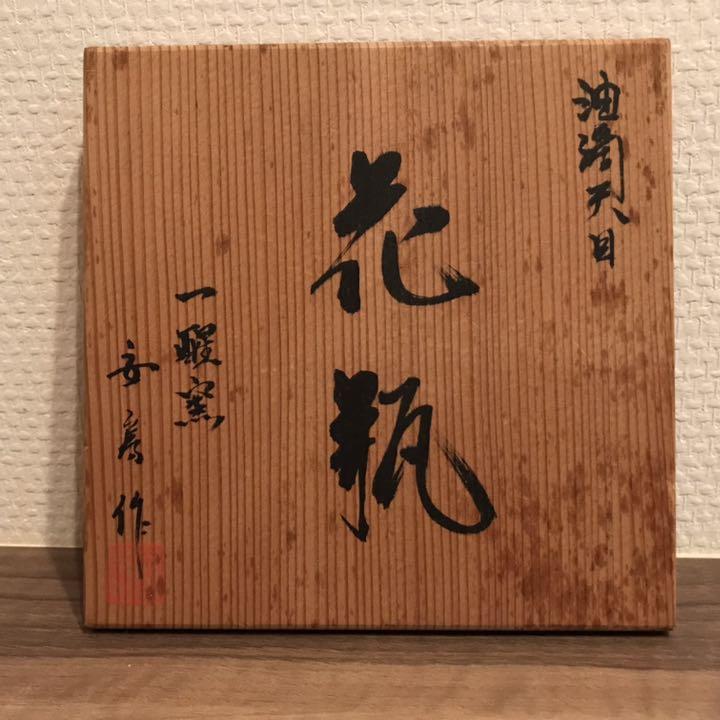 油滴天目
花瓶
一暇窯
安房作